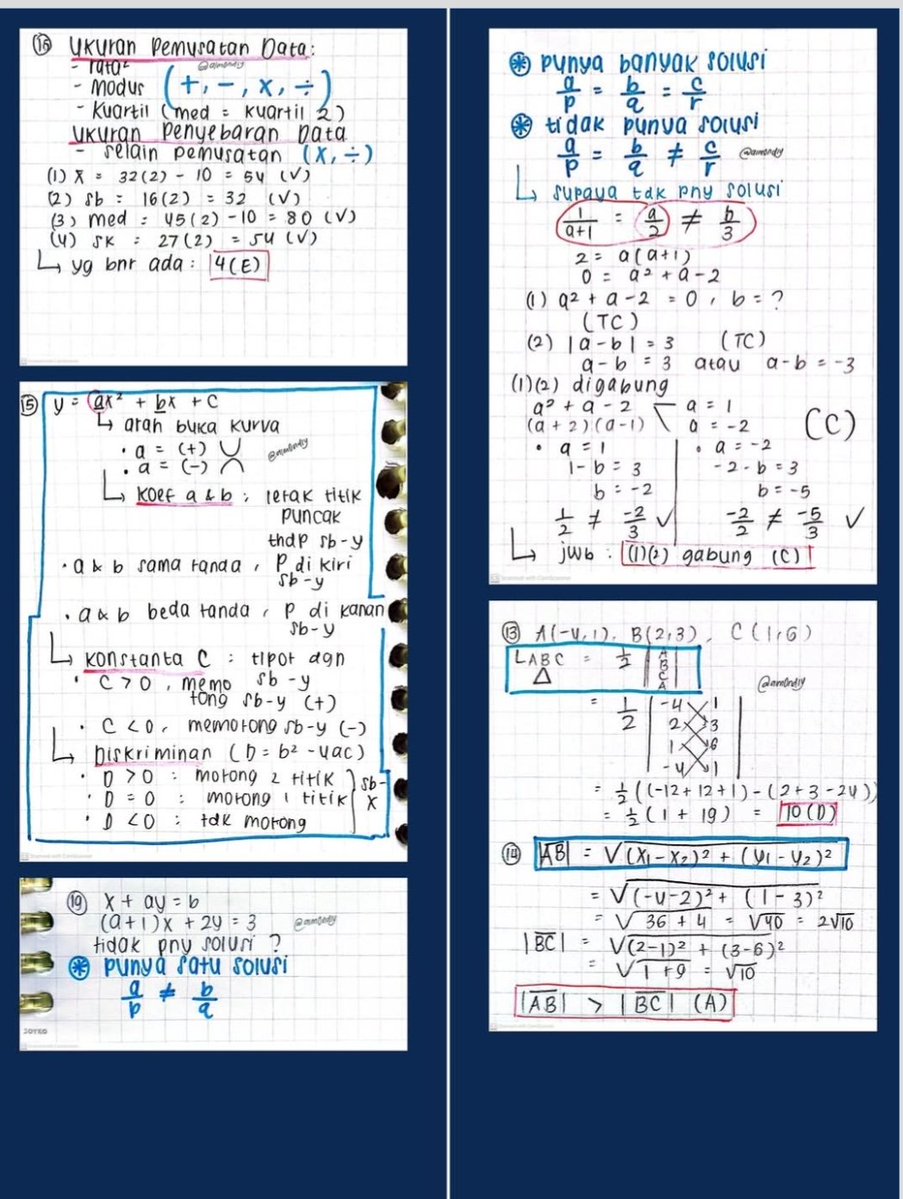 16 Ukuran Pemusatan Data:
- rata²
@am0ndiy
- Modus (+, -, x, ÷)
- Kuartil (med = kuartil 2)
Ukuran Penyebaran Data
- selain pemusatan (x, ÷)
(1) x̄ = 32(2) - 10 = 54 (√)
(2) sb = 16(2) = 32 (√)
(3) med = 45(2) - 10 = 80 (√)
(4) SK = 27(2) = 54 (√)
↳ yg bnr ada : 4(E)
15 y = ax² + bx + c
↳ arah buka kurva
• a = (+) ∪
• a = (-) ∩
@am0ndiy
↳ Koef a & b : letak titik
puncak
thdp sb-y
• a & b sama tanda, P di kiri
sb-y
• a & b beda tanda, P di kanan
sb-y
↳ Konstanta C : tipot dgn
sb-y
• C > 0, memo
tong sb-y (+)
• C < 0, memotong sb-y (-)
↳ Diskriminan (D = b² - 4ac)
• D > 0 : motong 2 titik
• D = 0 : motong 1 titik
• D < 0 : tdk motong
sb-
x
19 x + ay = b
(a+1)x + 2y = 3
@am0ndiy
tidak pny solusi ?
* punya satu solusi
a/p ≠ b/q
JOYKO
* punya banyak solusi
a/p = b/q = c/r
* tidak punya solusi
a/p = b/q ≠ c/r
@am0ndiy
↳ supaya tdk pny solusi
1/(a+1) = a/2 ≠ b/3
2 = a(a+1)
0 = a² + a - 2
(1) a² + a - 2 = 0, b = ?
(TC)
(2) |a - b| = 3 (TC)
a - b = 3 atau a - b = -3
(1)(2) digabung
a² + a - 2 a = 1
(a + 2)(a - 1) a = -2 (C)
• a = 1 • a = -2
1 - b = 3 -2 - b = 3
b = -2 b = -5
1/2 ≠ -2/3 √ -2/2 ≠ -5/3 √
↳ jwb : (1)(2) gabung (C)
13 A(-4,1), B(2,3), C(1,6)
L ABC = 1/2 | A
△ B
C
A |
@am0ndiy
= 1/2 | -4 1
2 3
1 6
-4 1 |
= 1/2 ((-12 + 12 + 1) - (2 + 3 - 24))
= 1/2 (1 + 19) = 10 (D)
14 |AB| = √(x₁ - x₂)² + (y₁ - y₂)²
= √(-4 - 2)² + (1 - 3)²
= √36 + 4 = √40 = 2√10
|BC| = √(2-1)² + (3-6)²
= √1 + 9 = √10
|AB| > |BC| (A)